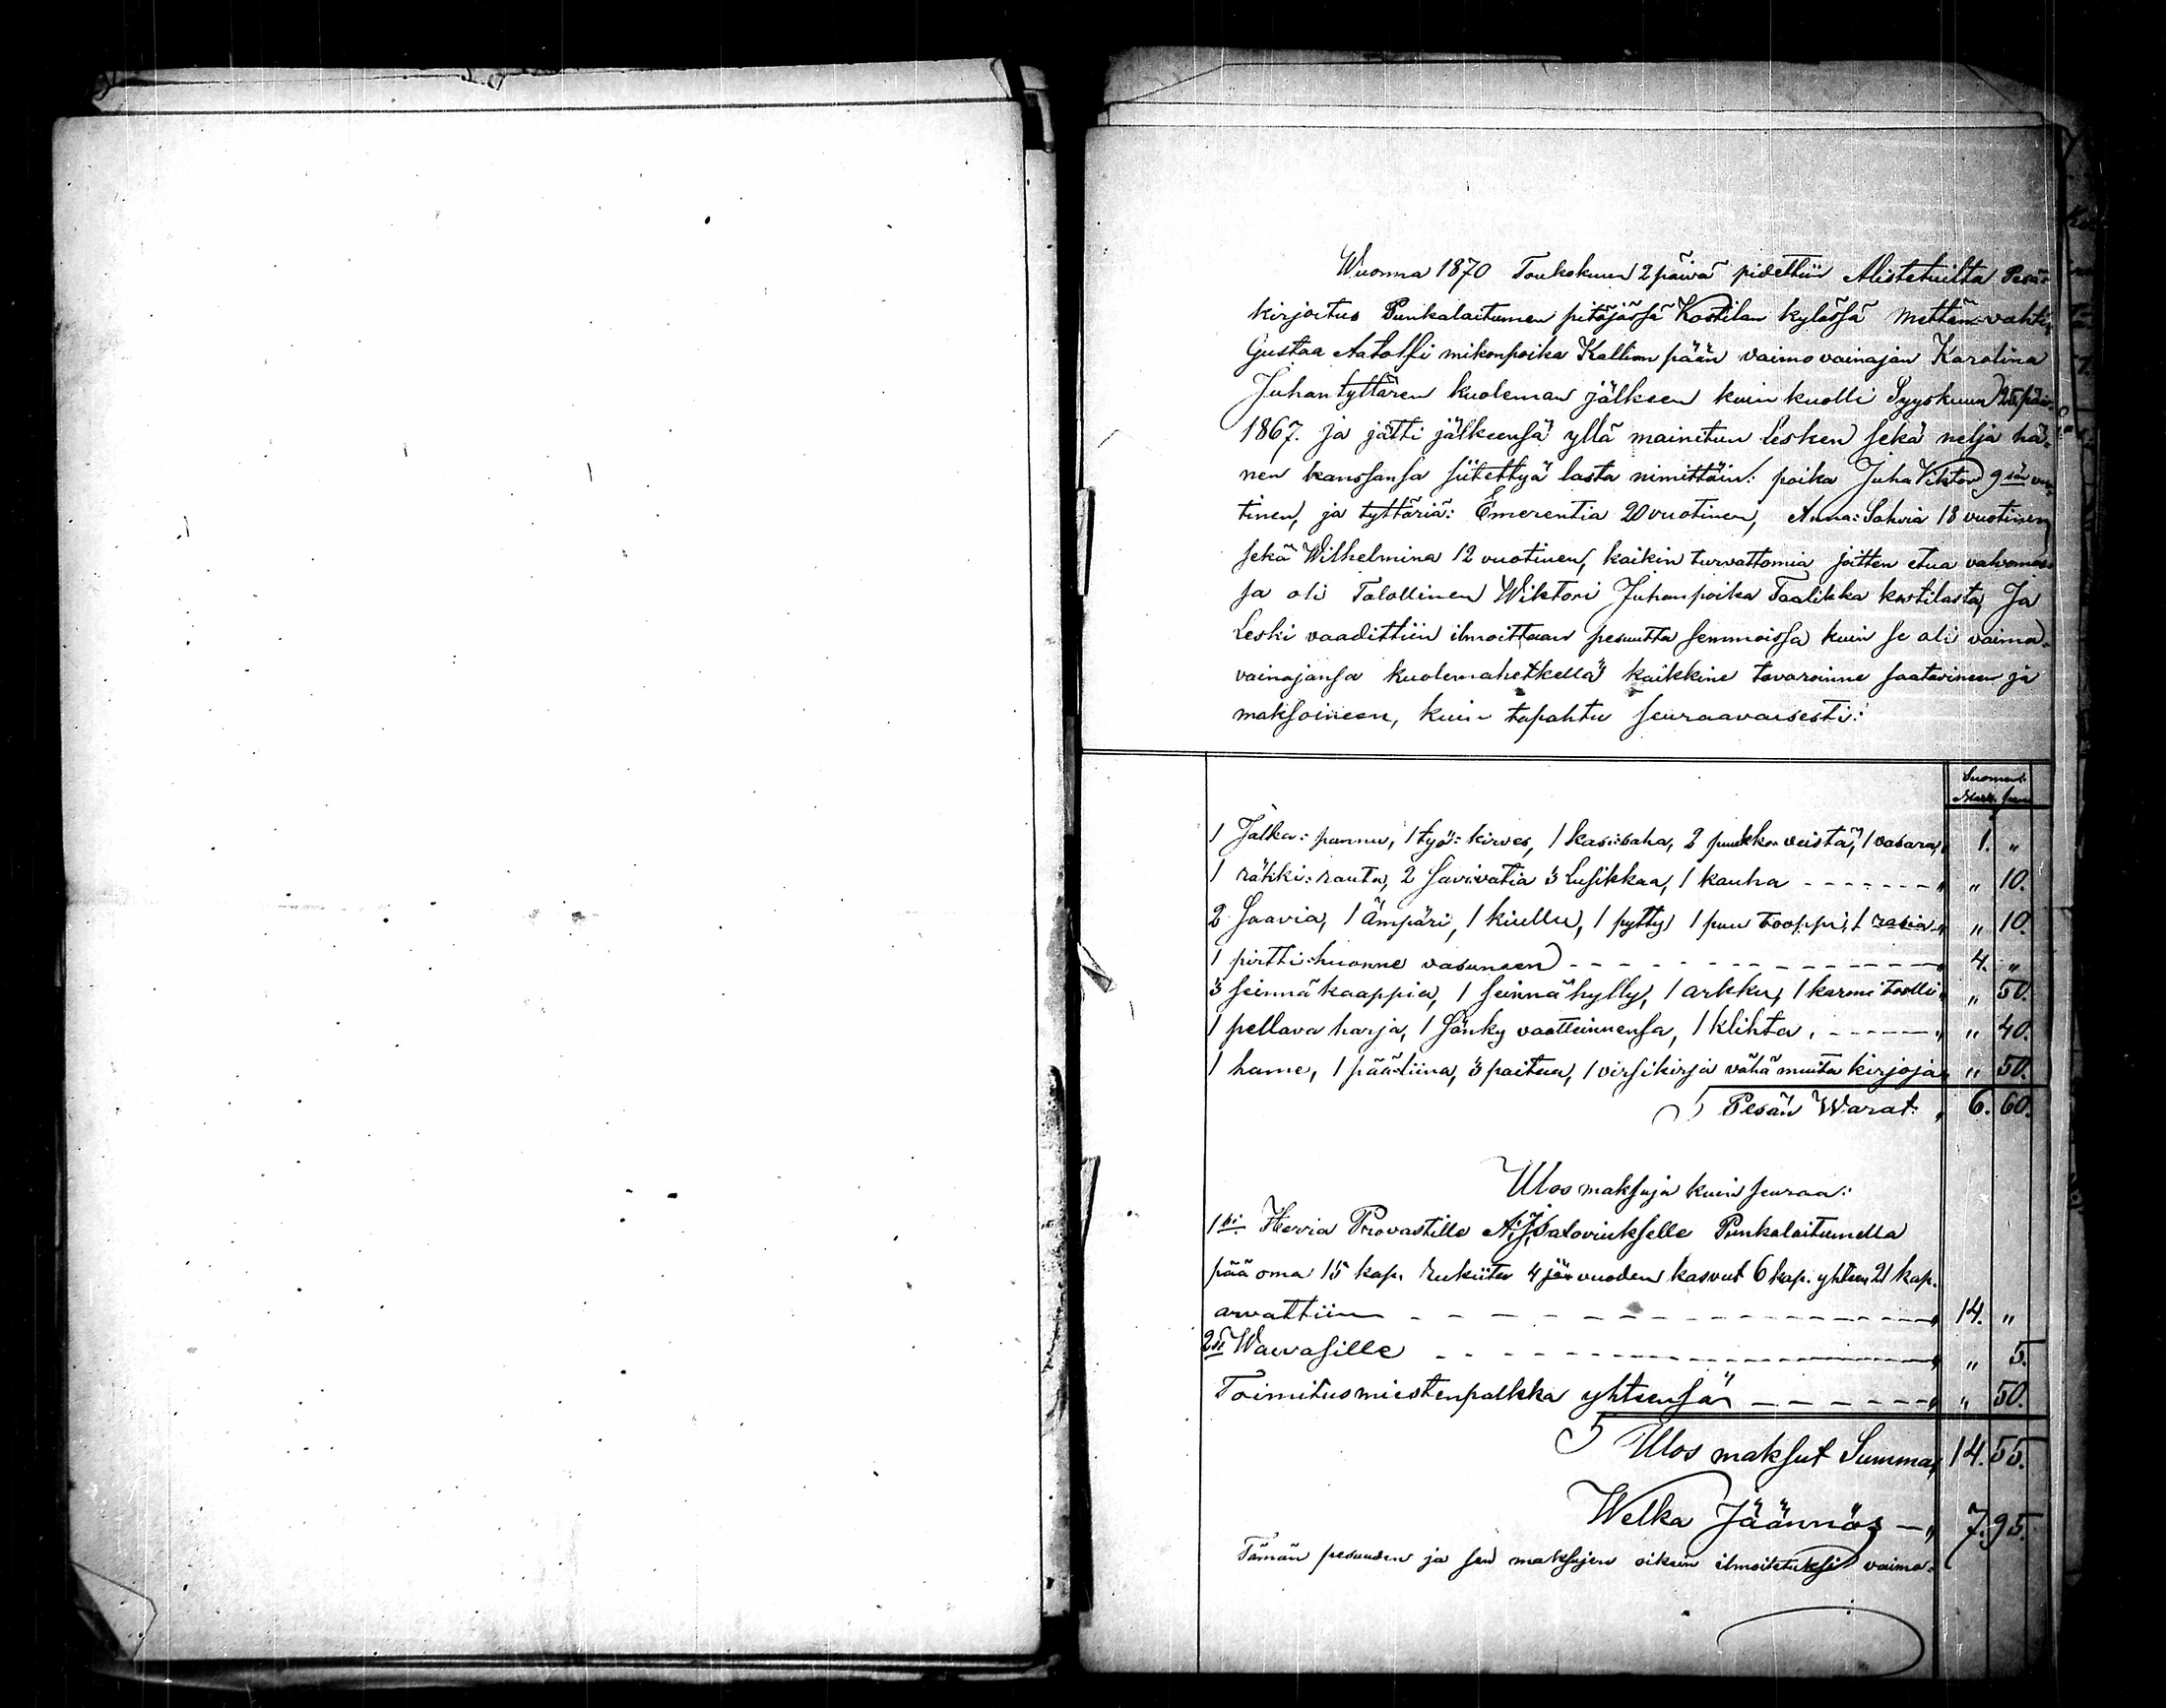 Wuonna 1870 Toukokuun 2 päivä pidettiin Alistetuilta Pesä-
kirjoitus Punkalaitumen pitäjässä Kostilan kylässä mettän-vahti
Gustaa Aatolfi mikonpoika Kallion pään vaimo vainajan Karolina
Juhan tyttären kuoleman jälkeen kuin kuolli Syyskuun 25 päiv.
1867. ja jätti jälkeensä yllä mainitun lesken sekä neljä hä-
nen kanssansa siitettyä lasta nimittäin: poika Juha Viktor 9 sän vuo-
tinen, ja tyttäriä: Emerentia 20 vuotinen, Anna: Sohvia 18 vuotinen
sekä Wilhelmina 12 vuotinen, kaikin turvattomia joitten etua valvomas-
sa oli Talollinen Wiktori Juhanpoika Taalikka kostilasta, Ja
Leski vaadittiin ilmoittaan pesuutta semmoissa kuin se oli vaimo-
vainajansa kuolemahetkellä kaikkine tavaroinne saatavineen ja
maksoineen, kuin tapahtu seuraavaisesti:
Suomen
Mark. pen
1 Jalka: pannu, 1 työ: kirves, 1 käsi: saha, 2 puukko veistä, 1 vasara, 1. "
1 räkki: rauta, 2 savivatia 3 Lusikkaa, 1 kauha " 10.
2 Saavia, 1 Ämpäri, 1 kiullu, 1 pytty 1 puu tooppi, 1 rasia " 10.
1 pirtti: huonne vasuneen 4. "
3 seinnä kaappia, 1 seinnä hylly, 1 arkku, 1 karmi toolli " 50.
1 pellava harja, 1 Sänky vaatteinnensa, 1 klihta. " 40.
1 hame, 1 pää-liina, 3 paitaa, 1 virsikirja vähä muita kirjoja " 50.
S Pesän Warat 6. 60.
Ulos maksuja kuin seuraa:
1ksi Herra Provastille A: J: Saloviukselle Punkalaitumella
pää oma 15 kap. rukiita 4 jän vuoden kasvut 6 kap. yhteen 21 kap.
arvattiin 14. "
2si Waivasille " 5.
Toimitusmiestenpalkka yhteensä " 50.
S Ulos maksut Summa 14. 55.
Welka Jäännös 7. 95.
Tämän pesuuden ja sen maksujen oikein ilmoitetuksi vaimo-